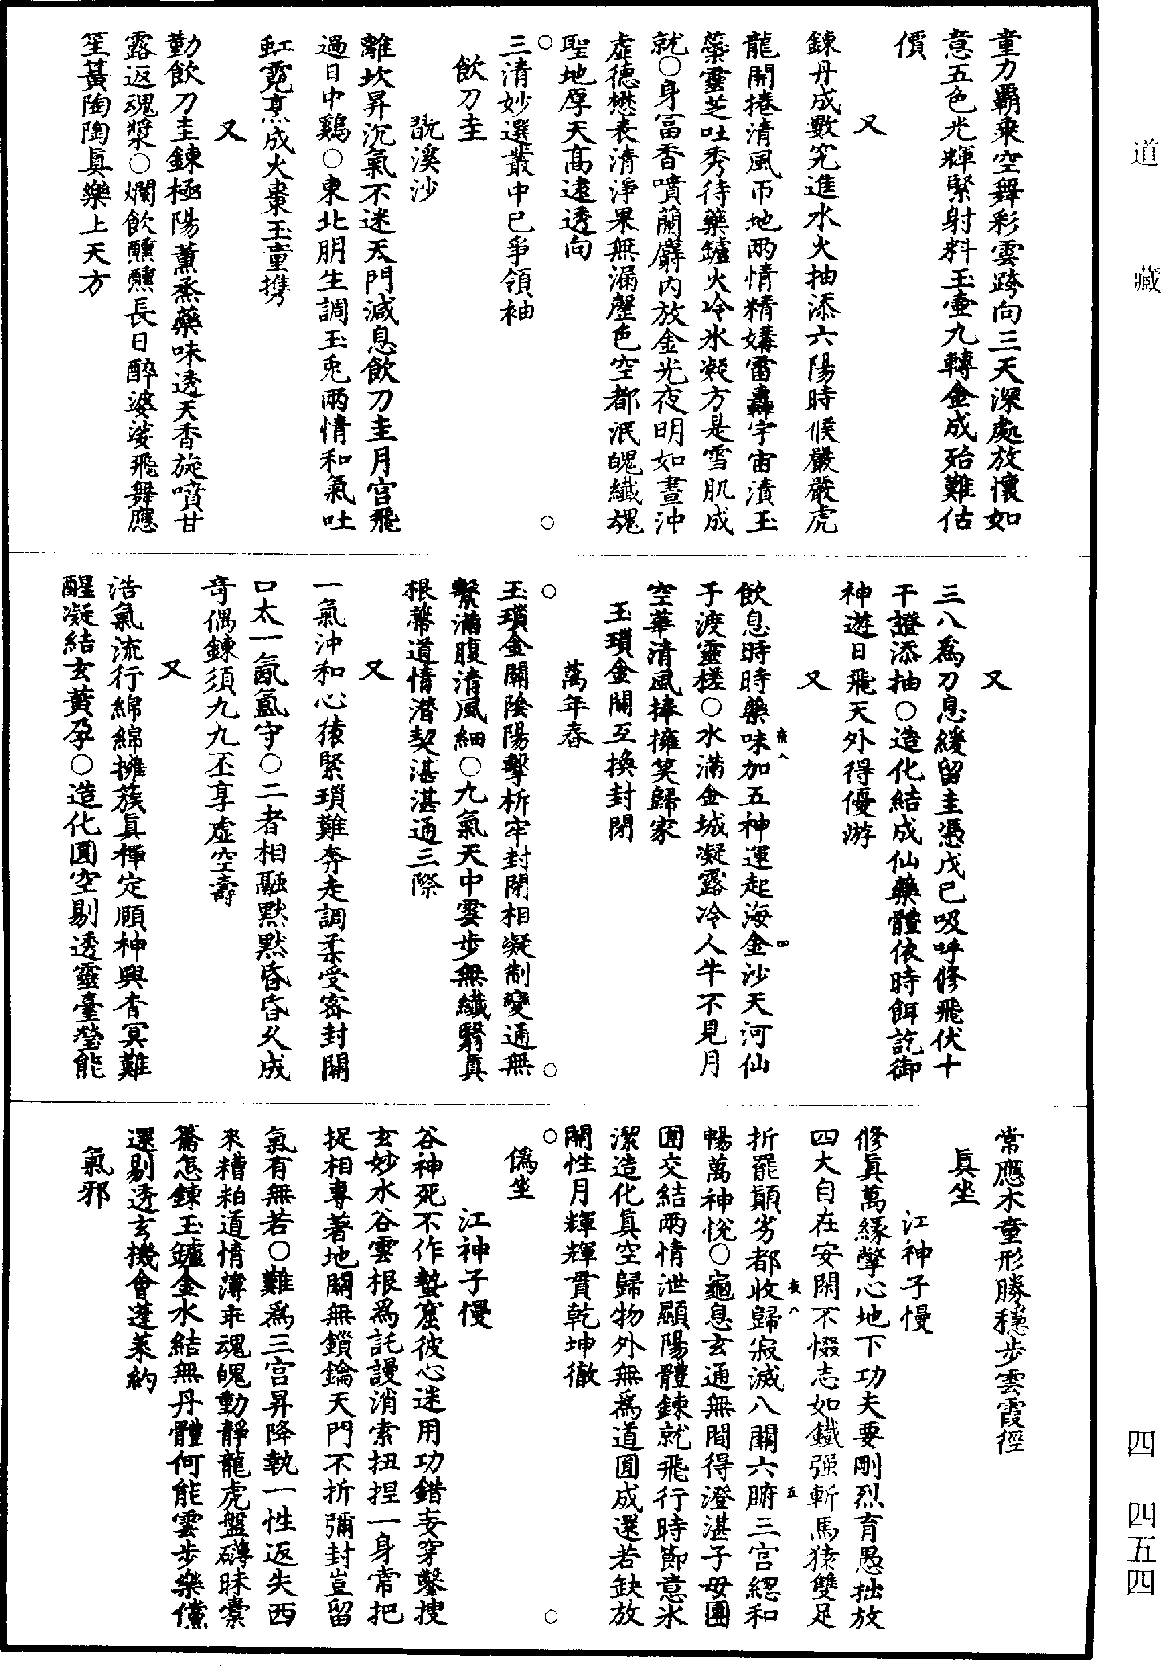 道藏
童力霸乘空舞彩雲跨向三天深處放懷如
意五色光輝緊射料玉壺九轉金成殆難估
價
又
鍊丹成數究進水火抽添六陽時候嚴嚴虎
龍開捲清風帀地兩情精媾雷轟宇宙漬玉
蘂靈芝吐秀待藥鑪火冷氷凝方是雪肌成
就○身冨香噴蘭麝內放金光夜明如晝沖
虛德懋表清淨果無漏壓色空都泯魄纖魂
聖地厚天高遠透向
三清妙選叢中已爭領袖
飲刀圭
翫溪沙
離坎昇沉氣不迷天門減息飲刀圭月宮飛
過日中鷄○東北朋生調玉兎兩情和氣吐
虹霓烹成火棗玉童攜
又
勤飲刀圭鍊極陽薰烝藥味透天香旋噴甘
露返魂漿○爛飲醺醺長日醉婆娑飛舞應
笙簧陶陶眞樂上天方
又
三八爲刀息緩留圭憑戊已吸呼修飛伏十
干證添抽○造化結成仙藥體依時餌訖御
神遊日飛天外得優游
又
飲息時時藥味加五神運起海金沙天河仙
子渡靈槎○水滿金城凝露冷人牛不見月
空華清風捧擁笑歸家
玉瑣金關互換封閉
萬年春
玉瑣金關陰陽擊柝牢封閉相凝制變通無
繫滿腹清風細○九氣天中雲步無纖翳眞
根蔕道情潛契湛湛通三際
又
一氣沖和心猿緊瑣難奔走調柔受密封關
口太一氤氳守○二者相融默默昏昏久成
竒偶鍊須九九丕享虛空壽
又
浩氣流行綿綿擁蔟眞禪定願神興杳冥難
醒凝結玄黃孕○造化圓空剔透靈臺瑩能
常應木童形勝穩步雲霞徑
眞坐
江神子慢
修眞萬緣擊心地下功夫要剛烈育愚拙放
四大自在安閑不惙志如鐵强斬馬猿雙足
折罷顚劣都收歸寂滅八關六腑三宮緫和
暢萬神悅○龜息玄通無間得澄湛子母團
圓交結兩情泄顯陽體鍊就飛行時節意氷
潔造化眞空歸物外無爲道圓成選若缺放
開性月輝輝貫乾坤徹
僞坐
江神子慢
谷神死不作蟄窟彼心迷用功錯妄穿鑿搜
玄妙水谷雲根爲託謾消索扭捏一身常把
捉相專著地關無鎖鑰天門不折彌封豈留
氣有無若○難爲三宮昇降執一性返失西
來糟粕道情薄乖魂魄動靜龍虎盤礴昧橐
籥怎鍊玉鑪金水結無丹體何能雲步樂儻
選剔透玄機會蓬萊約
氣邪
四 四五四